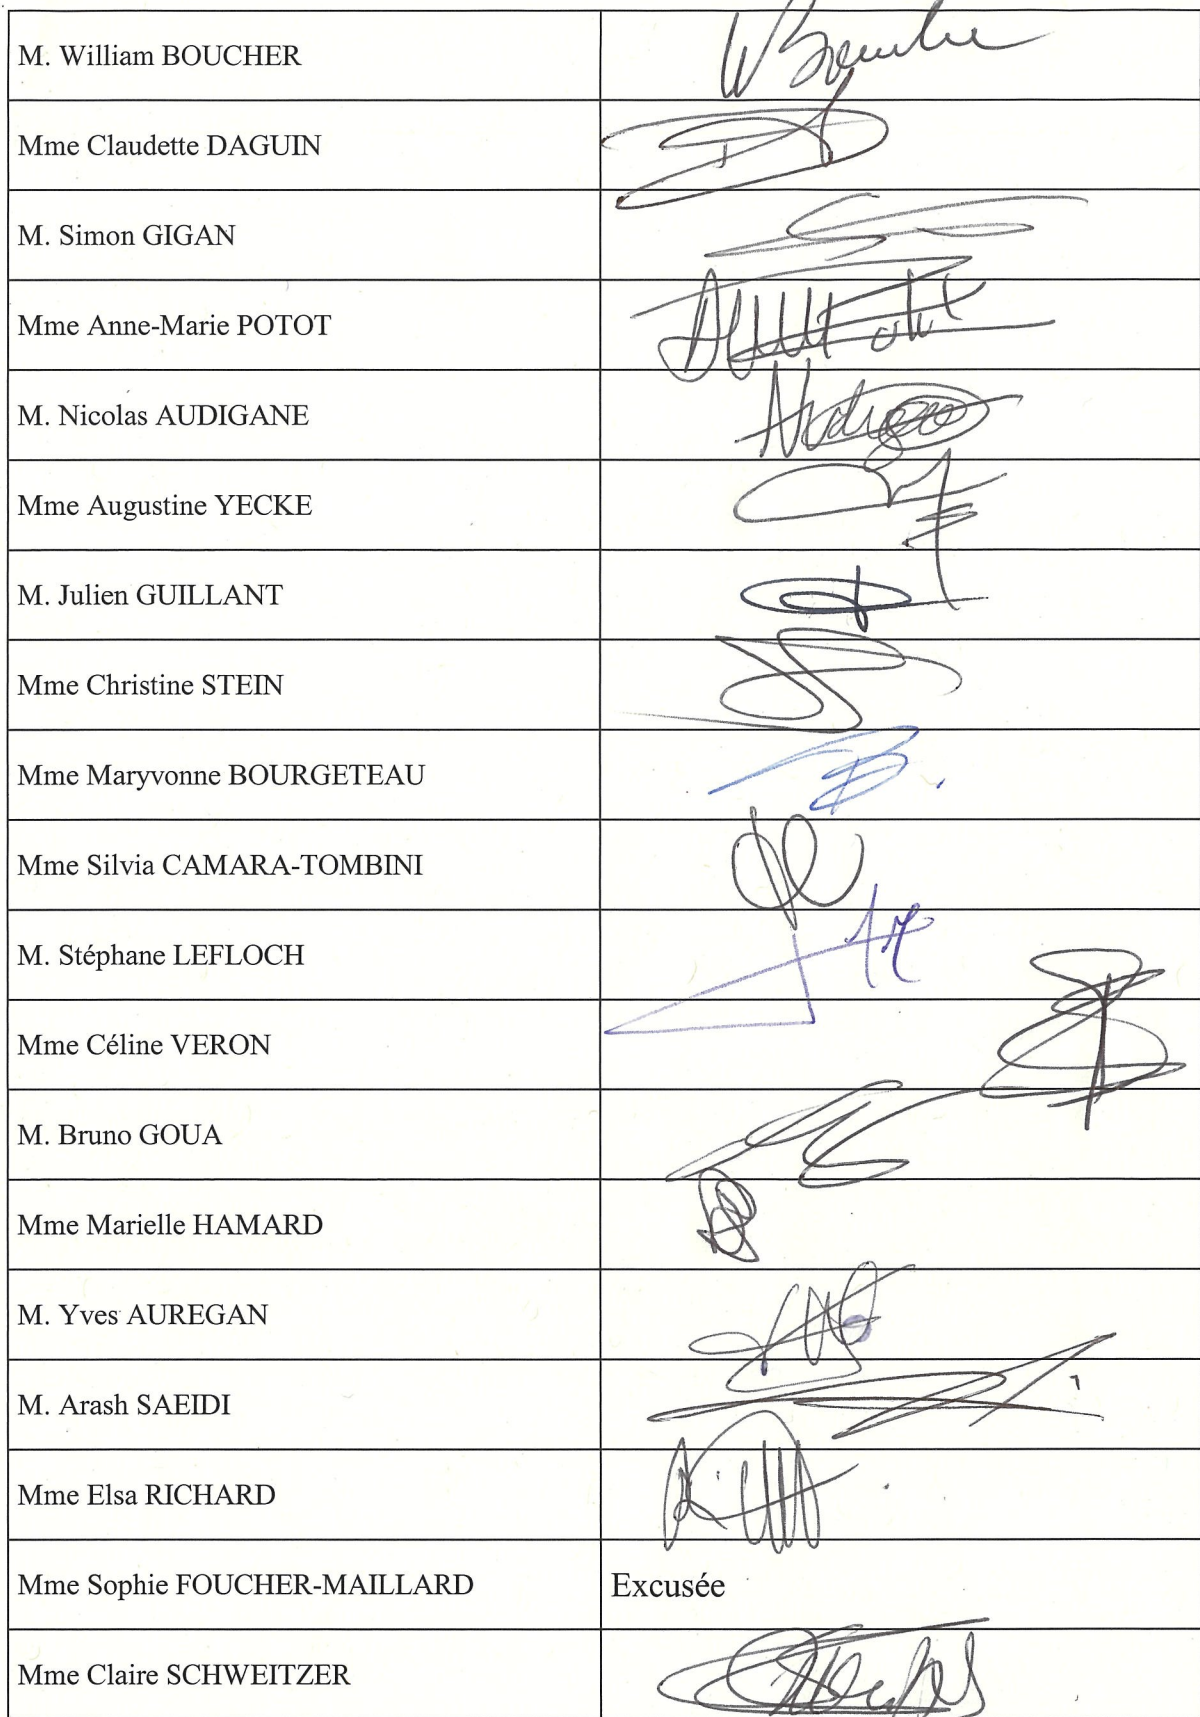 M. William BOUCHER
Mme Claudette DAGUIN
M. Simon GIGAN
Mme Anne-Marie POTOT
M. Nicolas AUDIGANE
Mme Augustine YECKE
M. Julien GUILLANT
Mme Christine STEIN
Mme Maryvonne BOURGETEAU
Mme Silvia CAMARA-TOMBINI
M. Stéphane LEFLOCH
Mme Céline VERON
M. Bruno GOUA
Mme Marielle HAMARD
M. Yves AUREGAN
M. Arash SAEIDI
Mme Elsa RICHARD
Mme Sophie FOUCHER-MAILLARD Excusée
Mme Claire SCHWEITZER